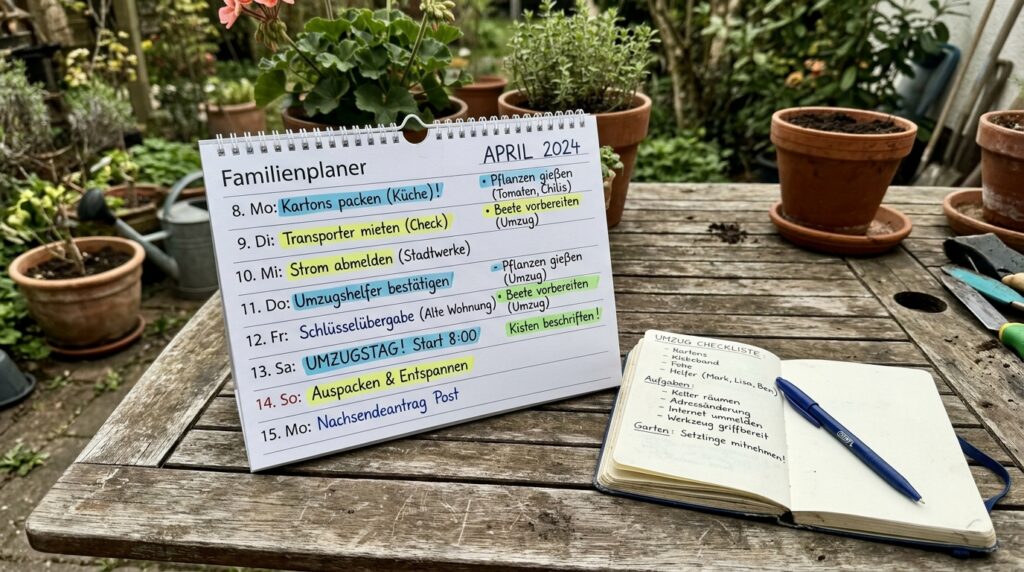 Familienplaner
APRIL 2024
8. Mo: Kartons packen (Küche)!
• Pflanzen gießen
(Tomaten, Chilis)
9. Di: Transporter mieten (Check)
• Beete vorbereiten
(Umzug)
10. Mi: Strom abmelden (Stadtwerke)
11. Do: Umzugshelfer bestätigen
• Pflanzen gießen
(Umzug)
12. Fr: Schlüsselübergabe (Alte Wohnung)
• Beete vorbereiten
(Umzug)
13. Sa: UMZUGSTAG! Start 8:00
Kisten beschriften!
14. So: Auspacken & Entspannen
15. Mo: Nachsendeantrag Post
UMZUG CHECKLISTE:
- Kartons
- Klebeband
- Helfer (Mark, Lisa, Ben)
Aufgaben:
- Keller räumen
- Adressänderung
- Internet ummelden
- Werkzeug griffbereit
Garten: Setzlinge mitnehmen!